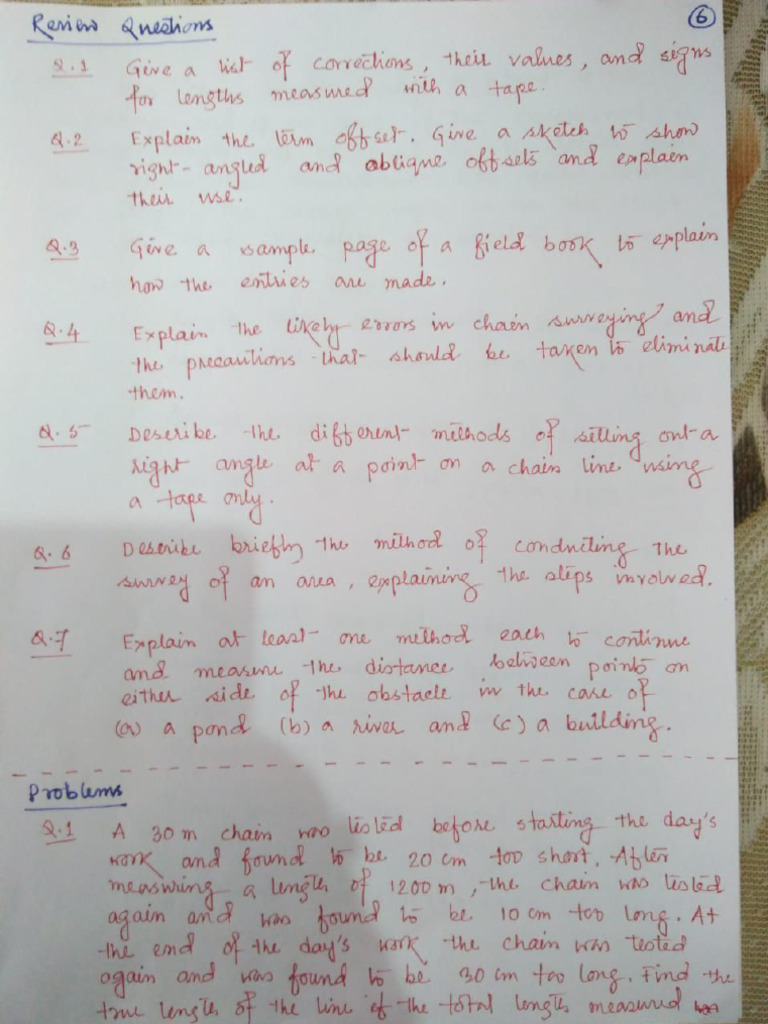 Review Questions
6
Q.1 Give a list of corrections, their values, and signs
for lengths measured with a tape.
Q.2 Explain the term offset. Give a sketch to show
right-angled and oblique offsets and explain
their use.
Q.3 Give a sample page of a field book to explain
how the entries are made.
Q.4 Explain the likely errors in chain surveying and
the precautions that should be taken to eliminate
them.
Q.5 Describe the different methods of setting out a
right angle at a point on a chain line using
a tape only.
Q.6 Describe briefly the method of conducting the
survey of an area, explaining the steps involved.
Q.7 Explain at least one method each to continue
and measure the distance between points on
either side of the obstacle in the case of
(a) a pond (b) a river and (c) a building.
Problems
Q.1 A 30 m chain was tested before starting the day's
work and found to be 20 cm too short. After
measuring a length of 1200 m, the chain was tested
again and was found to be 10 cm too long. At
the end of the day's work the chain was tested
again and was found to be 30 cm too long. Find the
true length of the line if the total length measured